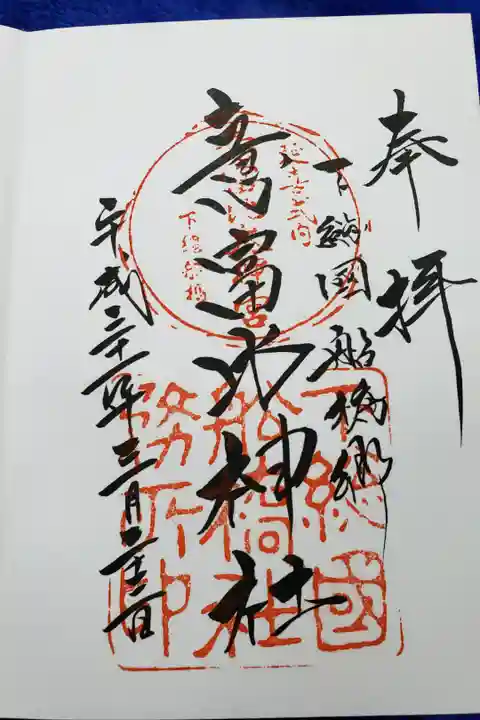 奉拝
下総国船橋郷
意富比神社
平成三十一年三月二十一日
延喜式内
下總船橋
下總國
船橋社
務所印